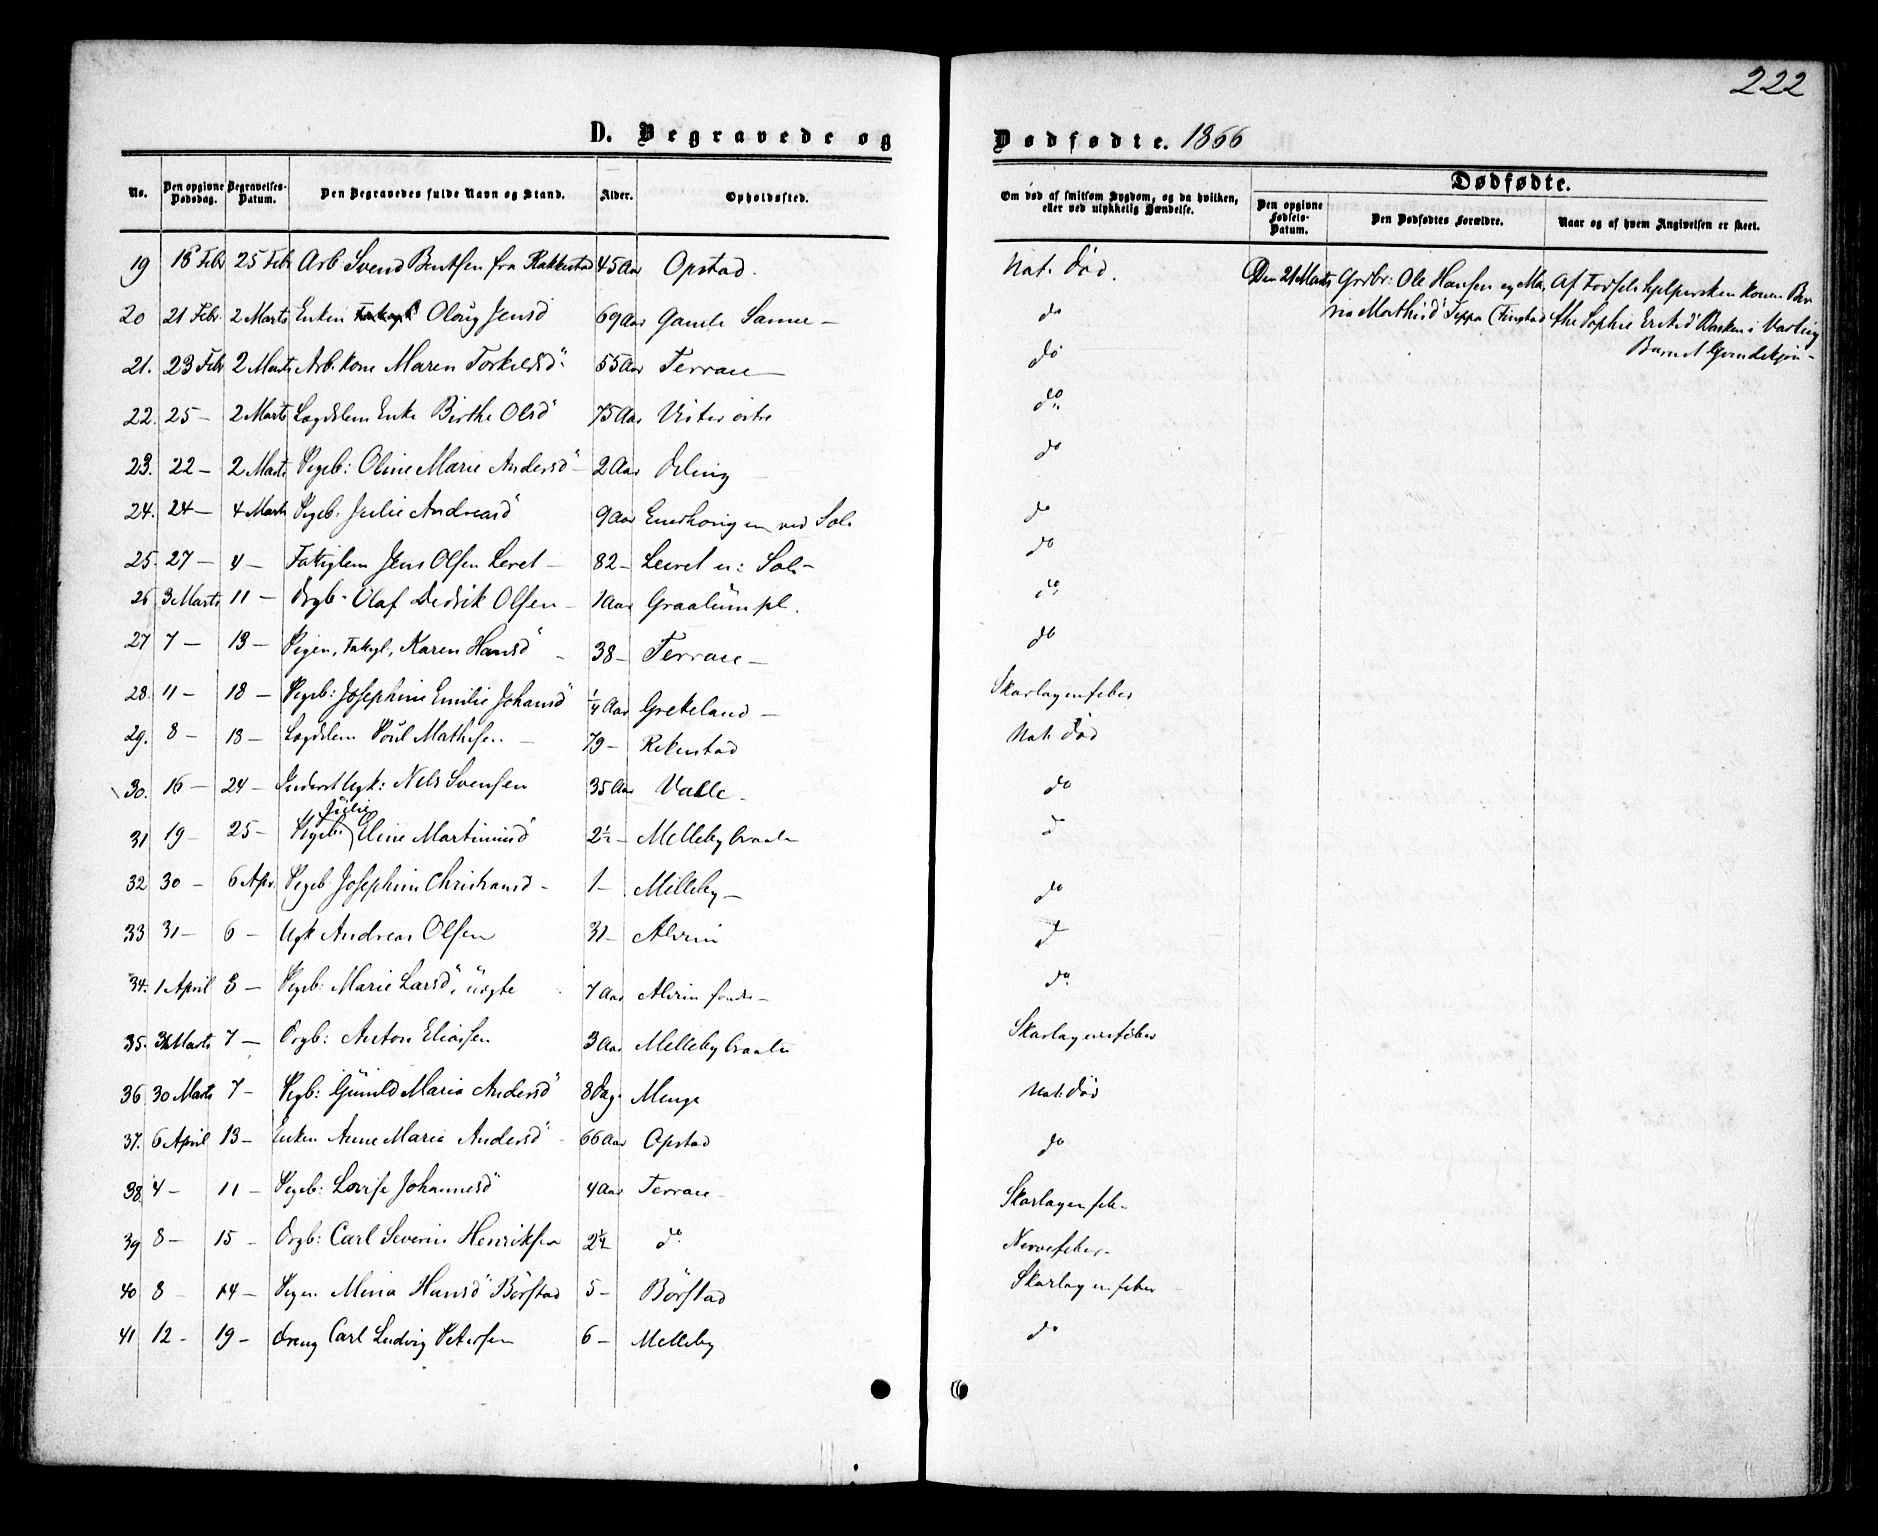 222
D. Begravede og Dødfødte. 1866
No. Den opgivne Dødsdag. Begravelses-Datum. Den Begravedes fulde Navn og Stand. Alder. Opholdssted. Om død af smitsom Sygdom, og da hvilken, eller ved ulykkelig Hændelse. Dødfødte.
Den opgivne Fødsels-Datum. Den Dødfødtes Forældre. Naar og af hvem Angivelsen er skeet.
19 18 Febr 25 Feb Arb Svend Bentsen fra Rakkestad 45 Aar Opstad. Nat. Død. Den 21 Marts Grdbr: Ole Hansen og Ma- Af Fødselshjelpersken Konen Ber-
20 21 Febr. 2 Marts Enken Oloug Jensd 69 Aar Gamle Sanne - do ria Mathisd Teppa (Finstad the Sophie
21. 23 Febr 2 Marts Arb. kone Maren Torkildsd 55 Aar Terrase - do Barnet
22. 25 - 2 Marts Lægdslem Enke Birthe Olsd 75 Aar Vister østre do
23. 22 - 2 Marts Pigeb: Oline Marie Andersd - 2 Aar do
24. 24 - 4 Marts Pigeb. Julie Andreasd 9 Aar ved Sol. do
25. 27 - 4 - Fattiglem Jens Olsen Leret - 82 - Leiret u: Sol. - do
26 3 Marts 11 - Drgb. Olaf Didrik Olsen - 1 Aar Graalum pl. do
27 7 - 13 - Pigen, Fattigl, Karen Hansd - 38 - Terrase - do
28. 11 - 18 - Pigeb: Josephine Emilie Johansd 1/4 Aar Greteland - Skarlagensfeber
29. 8 - 13 - Lægdslem Poul Mathisen - 79 - Rekustad Nat. Død
30. 16 - 24 - Inderst Ugk: Nels Svensen 35 Aar Valle - do
Julie
31 19 - 25 - Pigeb: Eline Martinusd 2½ - Mellebybraaten d
32 30 - 6 Apr. Pigeb. Josephine Christiansd - 1 - Melleby - do
33 31 - 6 - Ugk Andreas Olsen 31 - Alvim d
34. 1 April 8 - Pigeb: Marie Larsd, uægte 7 Aar Alvim søndre - do
35. 31 Marts 7 - Drgb: Anton Eliassen 3 Aar Mellebybraaten Skarlagensfeber
36 30 Marts 7 - Pigb: Gunild Maria Andersd 8 Dag. Menge Nat. Død
37. 6 April 13 - Enken Anne Maria Andersd - 66 Aar Opstad do
38. 4 - 11 - Pigeb: Lovise Johannesd 4 Aar Terrase - Skarlagensfeb -
39 8 - 15 - Drgb: Carl Severin Henriksen 2¼ do Nervefeber -
40 8 - 14 - Pigen Mina Hansd Børstad 5 - Børstad Skarlagensfeber
41 12 - 19 - Dreng Carl Ludvig Petersen 6 - Melleby do